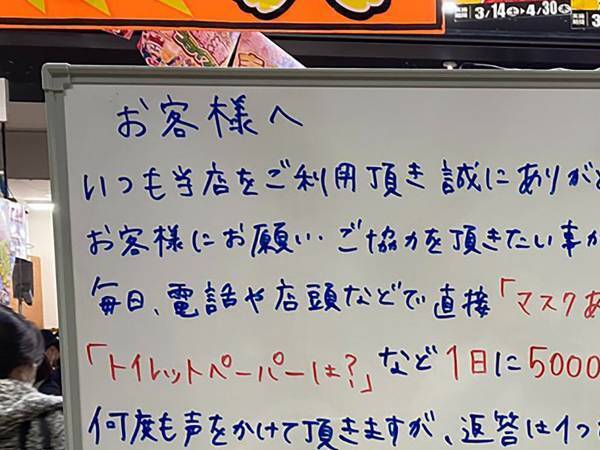 3/14土▶4/30木
お客様へ
いつも当店をご利用頂き誠にありが
お客様にお願い・ご協力を頂きたい事が
毎日、電話や店頭などで直接「マスクあ
「トイレットペーパーは?」など1日に5000
何度も声をかけて頂きますが、返答は1つ